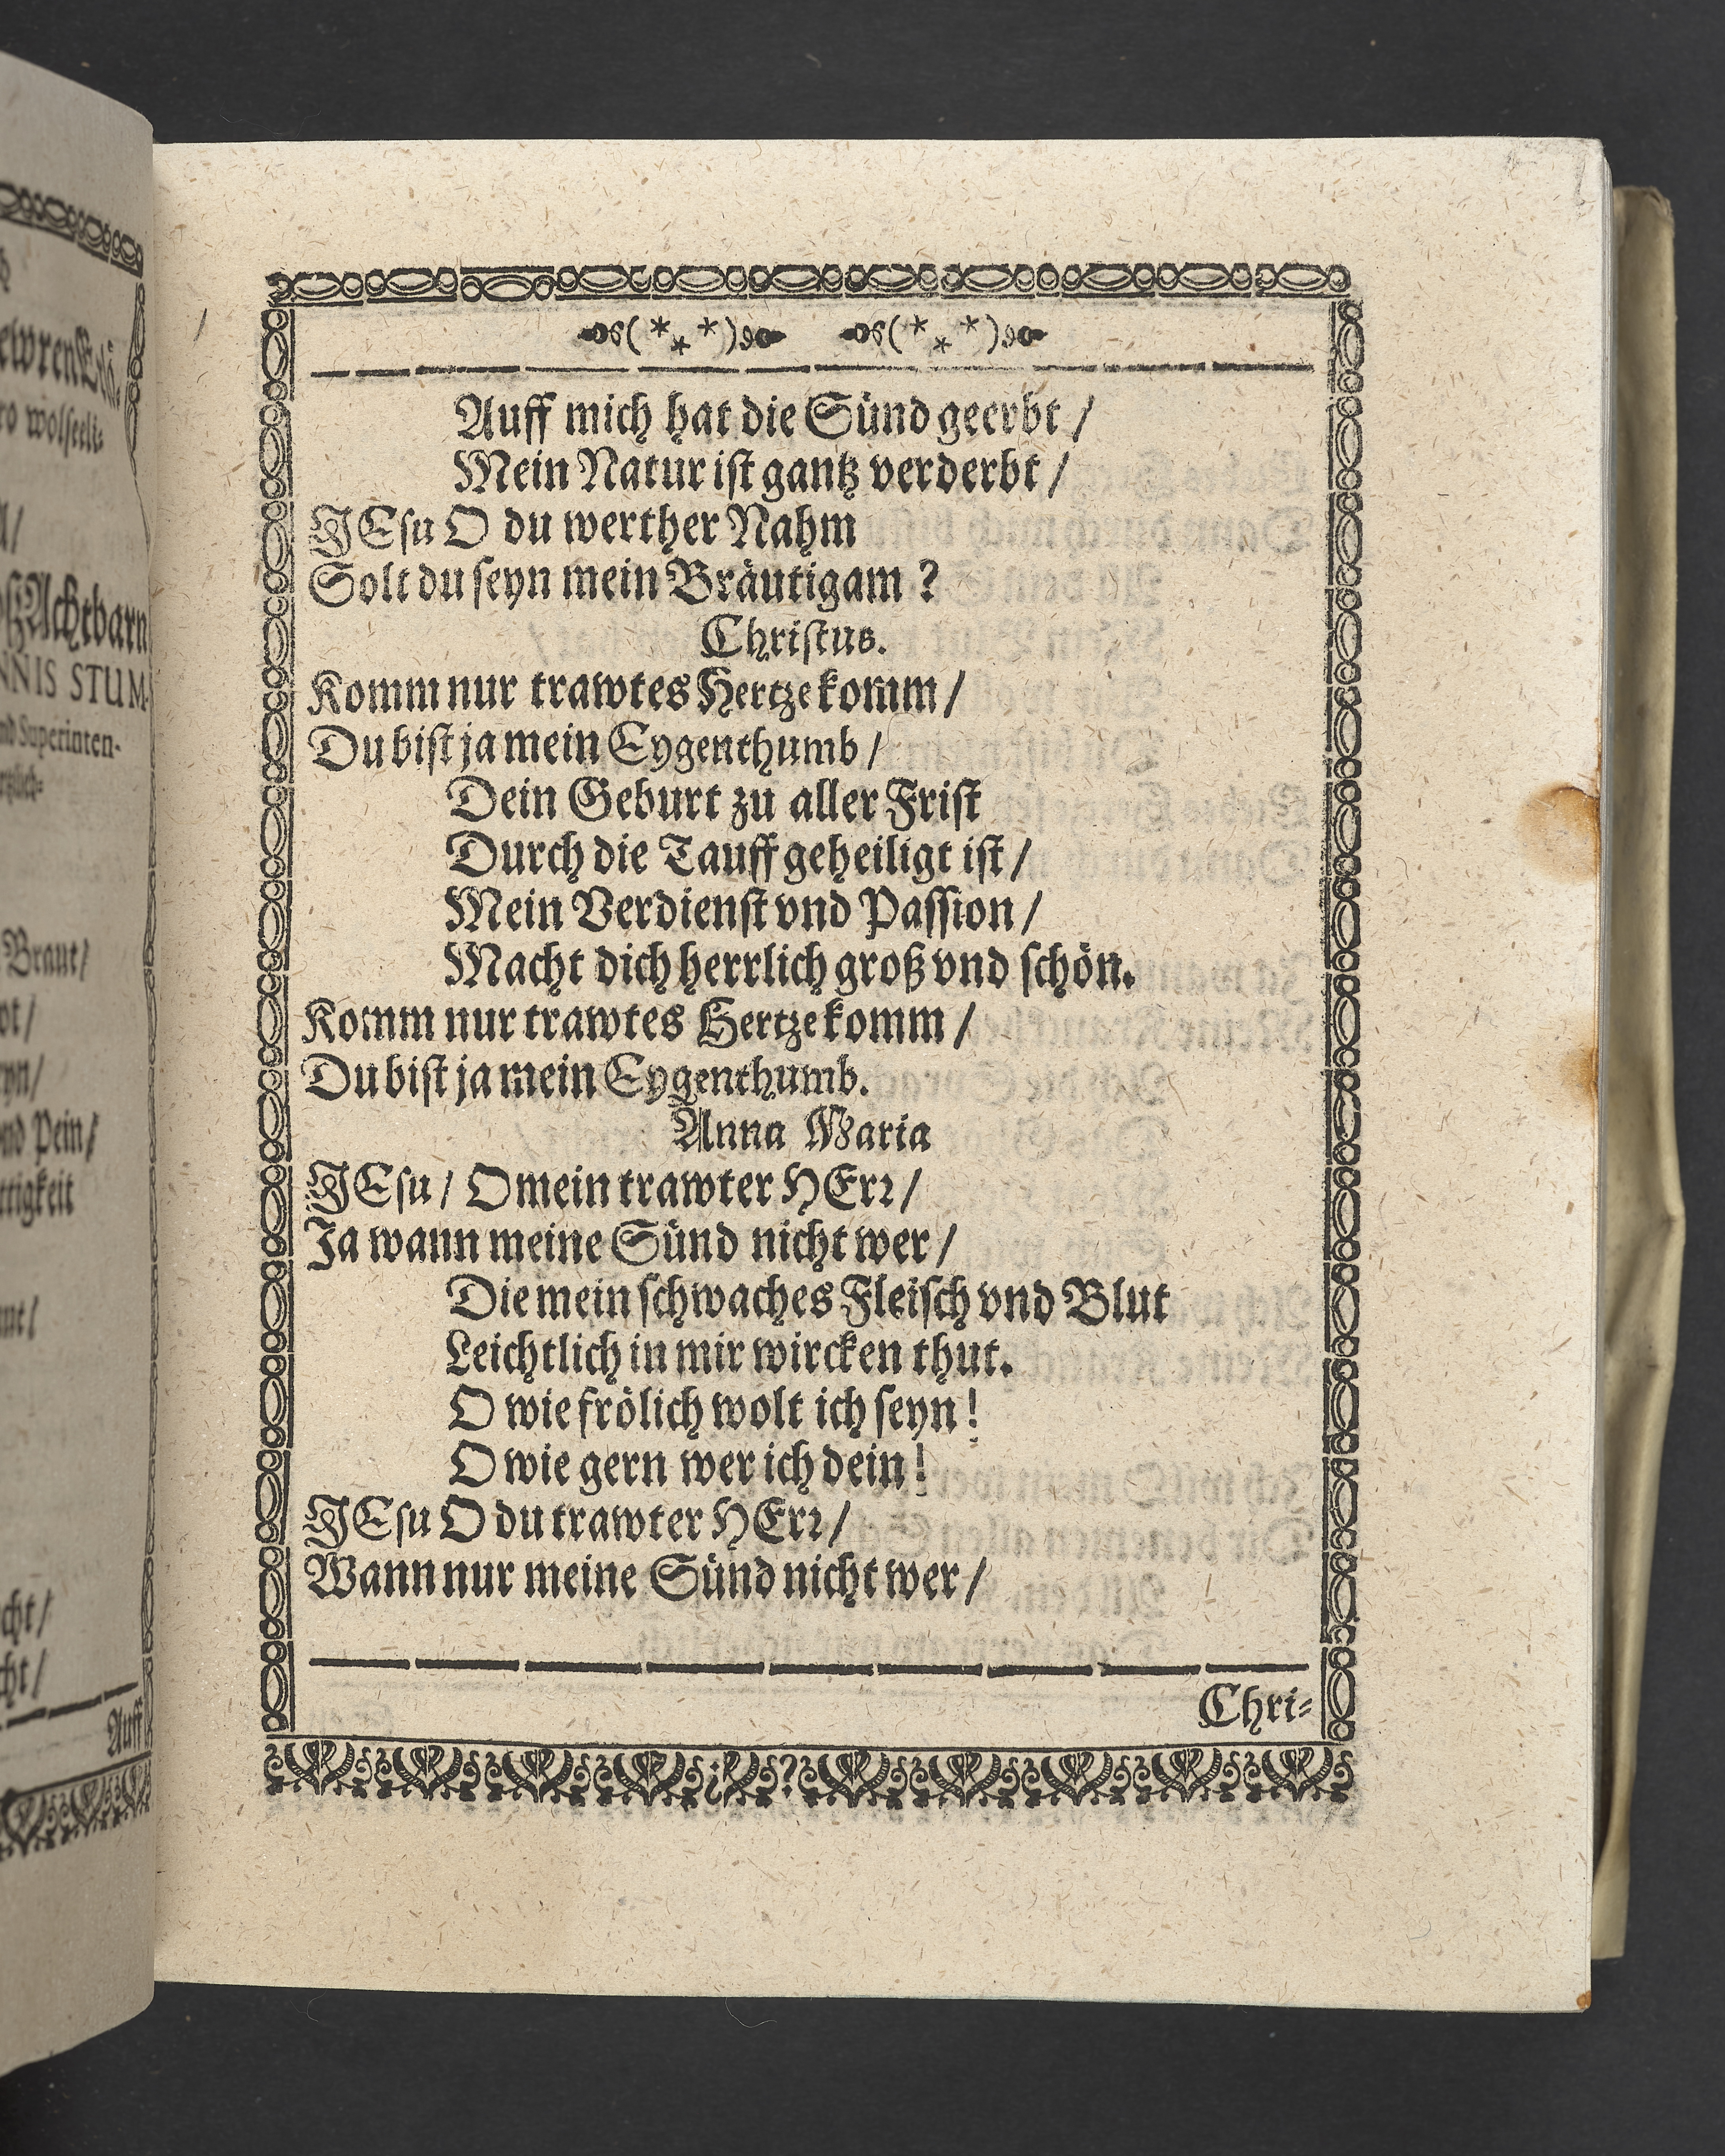 h
ewrenEh.
ro wolseeli⸗
/
ßAchtbarn
NNIS STUM-
nd Superinten-
Braut/
ot/
yn/
vnd Pein/
ttigkeit
cht/
cht/
Auff
Auff mich hat die Sünd geerbt /
Mein Natur iſt gantz verderbt /
JEſu O du werther Nahm
Solt du ſeyn mein Bräutigam ?
Chriſtus.
Komm nur trawtes Hertze komm /
Du biſt ja mein Eygenthumb /
Dein Geburt zu aller Friſt
Durch die Tauff geheiligt iſt /
Mein Verdienſt vnd Paſſion /
Macht dich herrlich groß vnd ſchön.
Komm nur trawtes Hertze komm /
Du biſt ja mein Eygenthumb.
Anna Maria
JEſu / O mein trawter HErꝛ /
Ja wann meine Sünd nicht wer /
Die mein ſchwaches Fleiſch vnd Blut
Leichtlich in mir wircken thut.
O wie frölich wolt ich ſeyn !
O wie gern wer ich dein !
JEſu O du trawter HErꝛ /
Wann nur meine Sünd nicht wer /
Chri⸗